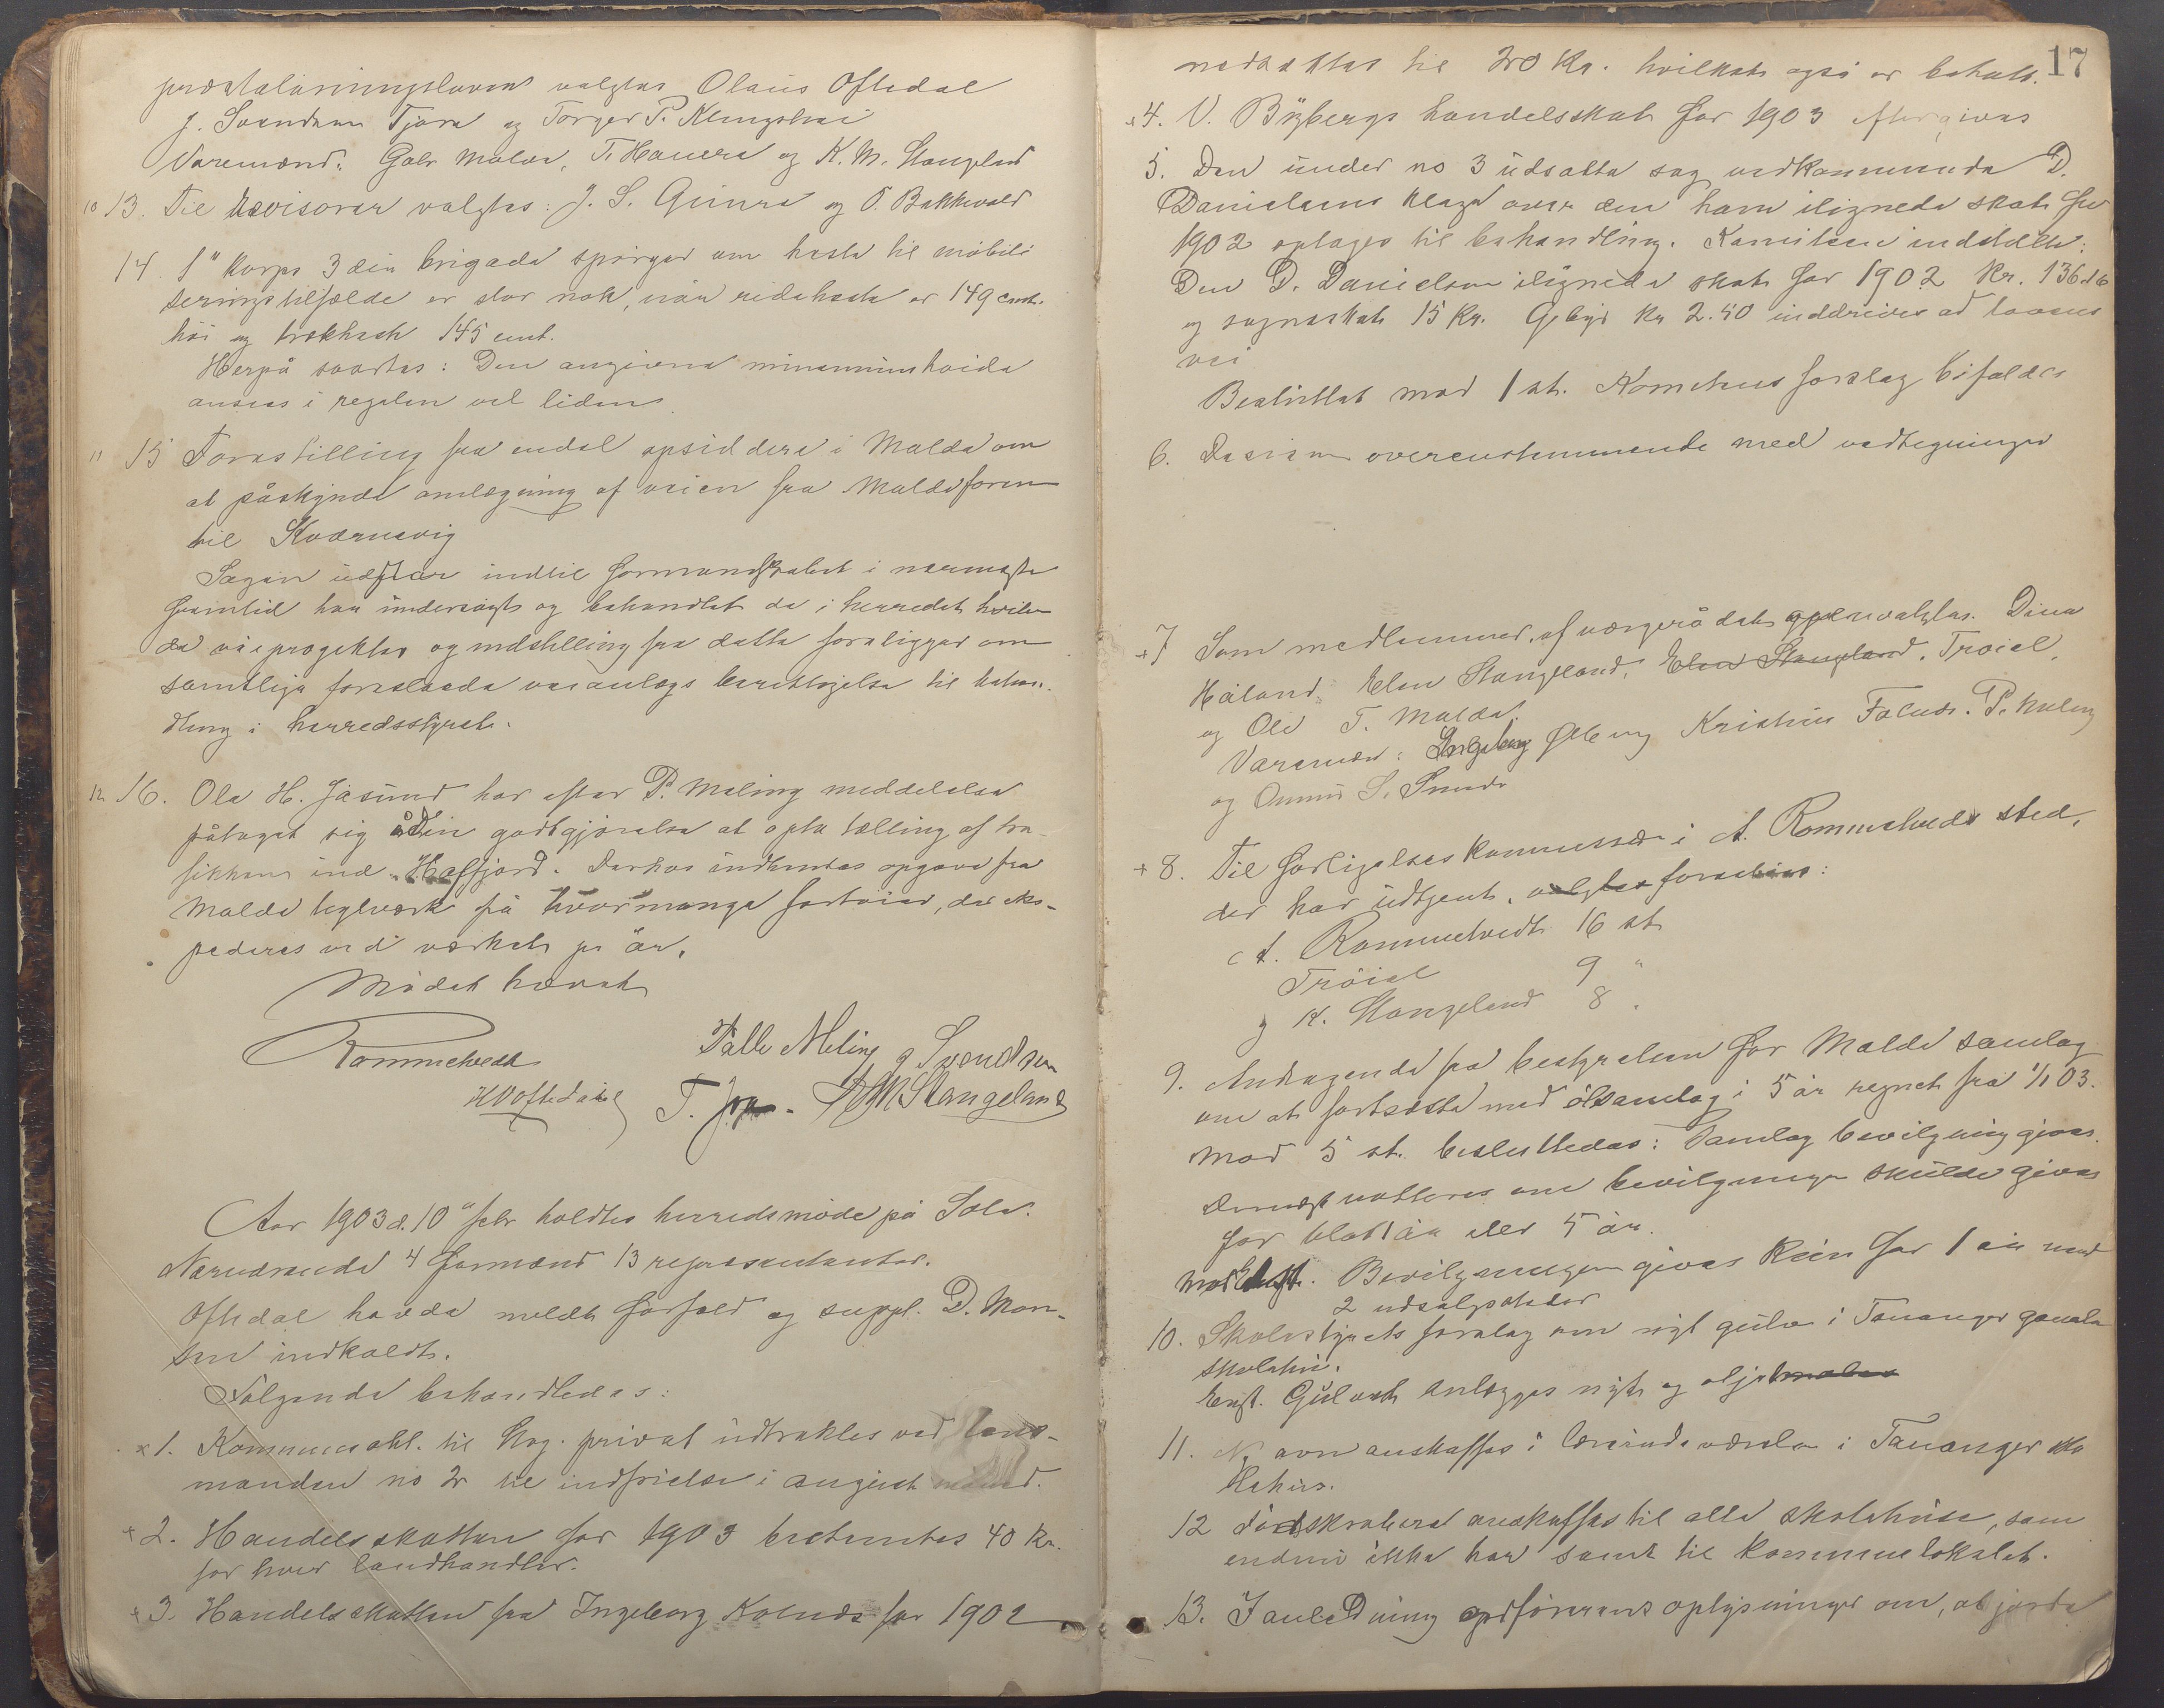 præstelønningsloven valgtes Olaus Oftedal
J. Svendsen Tjora og Torger P. Klungtvei
Varemænd: Gabr Malde, T. Hauera og K. M. Stangeland
10 13. Til Revisorer valgtes: J. S. Grimre og O. Bakkevold
14. 1" korps 3die brigade spørger om heste til mobili
seringstilfælde er stor nok, når ridehaste er 149 cmt.
høi og trækhest 145 cmt.
Herpå svartes: Den angivne minimumhøide
ansees i regelen vel liden.
11 15 Forestilling fra endel opsiddere i Malde om
at påskynde omlægning af veien fra Maldeforen
til Kværnevig
Sagen udstår indtil formandskabet i nærmeste
fremtid har undersøgt og behandlet de i herredet hvilen
de veiprojekter og indstilling fra dette foreligger om
samtlige foreslaade veianlægs berettigelse til behan-
dling i herredsstyret.
12 16. Ola H. Jåsund har efter P. Meling meddelelse
påtaget sig uden godtgjørelse at opta tælling af tra-
fikken ind Hafsfjord. Derhos indhentes opgave fra
Malde teglværk på hvormange fartøier, der eks-
pederes ved værket pr år.
Mødet hævet
Rommetvedt
Palle Meling J Svendsen
HOOftedal T. K M Stangeland
Aar 1903 d. 10" febr holdtes herredsmøde på Sola.
Nærværende 4 formænd 13 repræsentanter.
Oftedal havde meldt forfald og suppl. D. Mon-
sen indkaldt.
Følgende behandledes:
x 1. Kommuneobl. til Hog. privat udtrækkes ved lens-
manden no 2 til indfrielse i august måned.
x 2. Handelsskatten for 1903 bestemtes 40 kr.
for hver landhandler.
x 3. Handelsskatten fra Ingeborg Kolnes for 1902
17
nedsættes til 20 Kr. hvilket også er betalt.
x 4. V. Bybergs handelsskat for 1903 eftergives
5. Den under no 3 udsatte sag vedkommende D.
Danielsens klage over den ham ilignede skat for
1902 optages til behandling. Komiteen indstiller:
Den D. Danielsen ilignede skat for 1902 Kr. 136.16
og sogneskat 15 Kr. Gebyr Kr 2.50 inddrives ad lovens
vei
Besluttet mod 1 st. Komiteens forslag bifaldes
6. overensstemmende med vedtegninger
x 7 Som medlemmer af værgerådet gjenvalgtes. Dina
Håland, Elen Stangeland, Elen Stangeland, Trøiel,
og Ole T. Malde.
Varemæn: Ingeborg Øleung Kristine Folnes. P. Meling
og Ommund S. Snude
x 8. Til forligelseskommissær i A. Rommetvedts sted,
der har udtjent, valgtes foresloes:
A. Rommetvedt 16 st
Trøiel 9 "
og K. Stangeland 8 .
9. Andragende fra bestyrelsen for Malde samlag
om at fortsætte med ølsamlag i 5 år regnet fra 1/1 03.
Mod 5 st. besluttedes: Samlag bevilgning gives.
Dernæst votteres om bevilgningen skulde gives
for blot 1 år eller 5 år.
Mod Bevilgningen gives kun for 1 år med
2 udsalgssteder
10. Skolestyrets forslag om nyt gulv i Tananger gamle
skolehus.
Enst. Gulvet anlægges nyt og oljemales
11. Ny ovn anskaffes i lærerindeværelse i Tananger sko
lehus.
12 Fodskrabere anskaffes til alle skolehuse, som
endnu ikke har samt til kommunelokalet.
13. I anledning ordførerens oplysninger om, at jorde